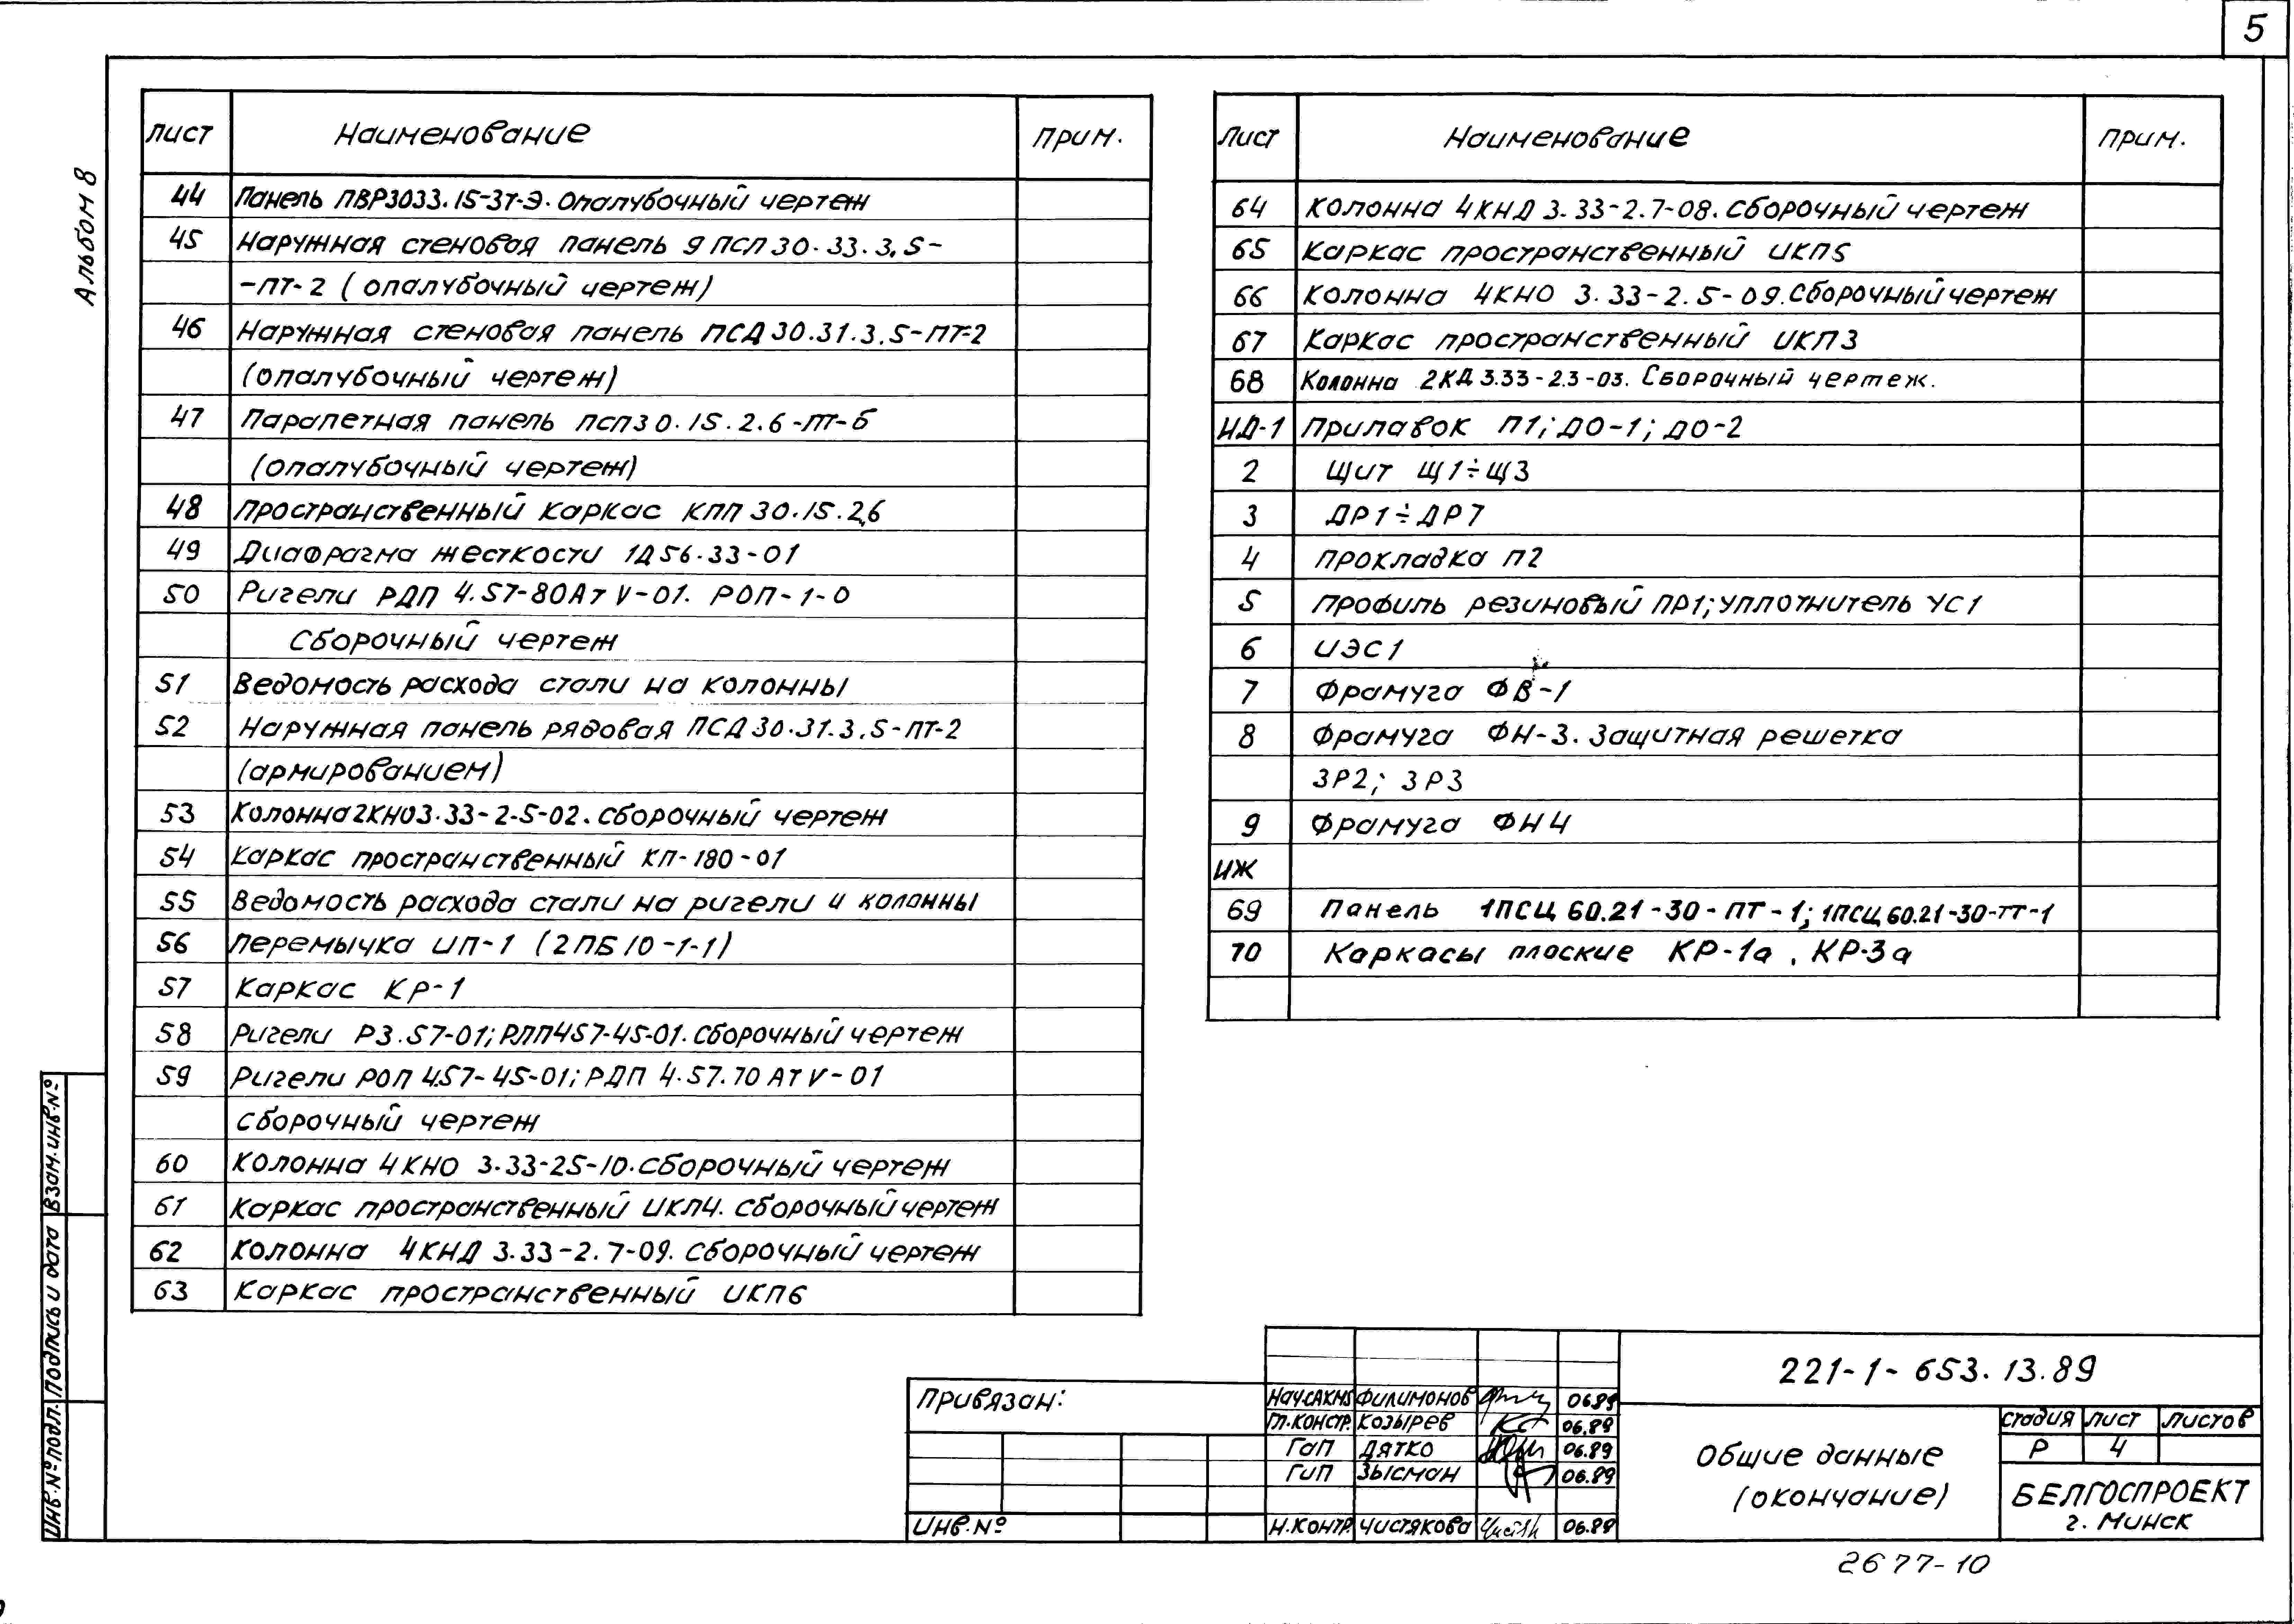 5
Альбом 8
Лист Наименование Прим.
44 Панель ПВР3033.15-3т-Э. Опалубочный чертеж
45 Наружная стеновая панель 9 ПСП 30.33.3,5-
-ПТ-2 (опалубочный чертеж)
46 Наружная стеновая панель ПСД 30.31.3.5-ПТ-2
(опалубочный чертеж)
47 Парапетная панель ПСП30.15.2.6-ПТ-б
(опалубочный чертеж)
48 Пространственный каркас КПП 30.15.2,6
49 Диафрагма жесткости 1Д56.33-01
50 Ригели РДП 4.57-80АтV-01. РОП-1-0
Сборочный чертеж
51 Ведомость расхода стали на колонны
52 Наружная панель рядовая ПСД 30.31.3.5-ПТ-2
(армированием)
53 Колонна 2КНО3.33-2.5-02. Сборочный чертеж
54 Каркас пространственный КП-180-01
55 Ведомость расхода стали на ригели и колонны
56 Перемычка ИП-1 (2ПБ10-1-1)
57 Каркас КР-1
58 Ригели Р3.57-01; РЛП457-45-01. Сборочный чертеж
59 Ригели РОП 4.57-45-01; РДП 4.57.70 АтV-01
Сборочный чертеж
60 Колонна 4КНО 3.33-25-10. Сборочный чертеж
61 Каркас пространственный ИКП4. Сборочный чертеж
62 Колонна 4КНД 3.33-2.7-09. Сборочный чертеж
63 Каркас пространственный ИКП6
Лист Наименование Прим.
64 Колонна 4КНД 3.33-2.7-08. Сборочный чертеж
65 Каркас пространственный ИКП5
66 Колонна 4КНО 3.33-2.5-09. Сборочный чертеж
67 Каркас пространственный ИКП3
68 Колонна 2КД 3.33-2.3-03. Сборочный чертеж.
ИД-1 Прилавок П1; ДО-1; ДО-2
2 Щит Щ1÷Щ3
3 ДР1÷ДР7
4 Прокладка П2
5 Профиль резиновый ПР1; уплотнитель УС1
6 ИЭС1
7 Фрамуга ФВ-1
8 Фрамуга ФН-3. Защитная решетка
ЗР2; ЗР3
9 Фрамуга ФН4
ИЖ
69 Панель 1ПСЦ 60.21-30-ПТ-1; 1ПСЦ 60.21-30-ТТ-1
70 Каркасы плоские КР-1а, КР-3а
Инв.№подл. Подпись и дата Взам.инв.№
Привязан:
Инв.№
Нач.САКМ5 Филимонов 06.89
Гл.констр. Козырев 06.89
ГАП Дятко 06.89
ГИП Зысман 06.89
Н.контр. Чистякова 06.89
221-1-653.13.89
Общие данные
(окончание)
Стадия Лист Листов
Р 4
БЕЛГОСПРОЕКТ
г. Минск
2677-10